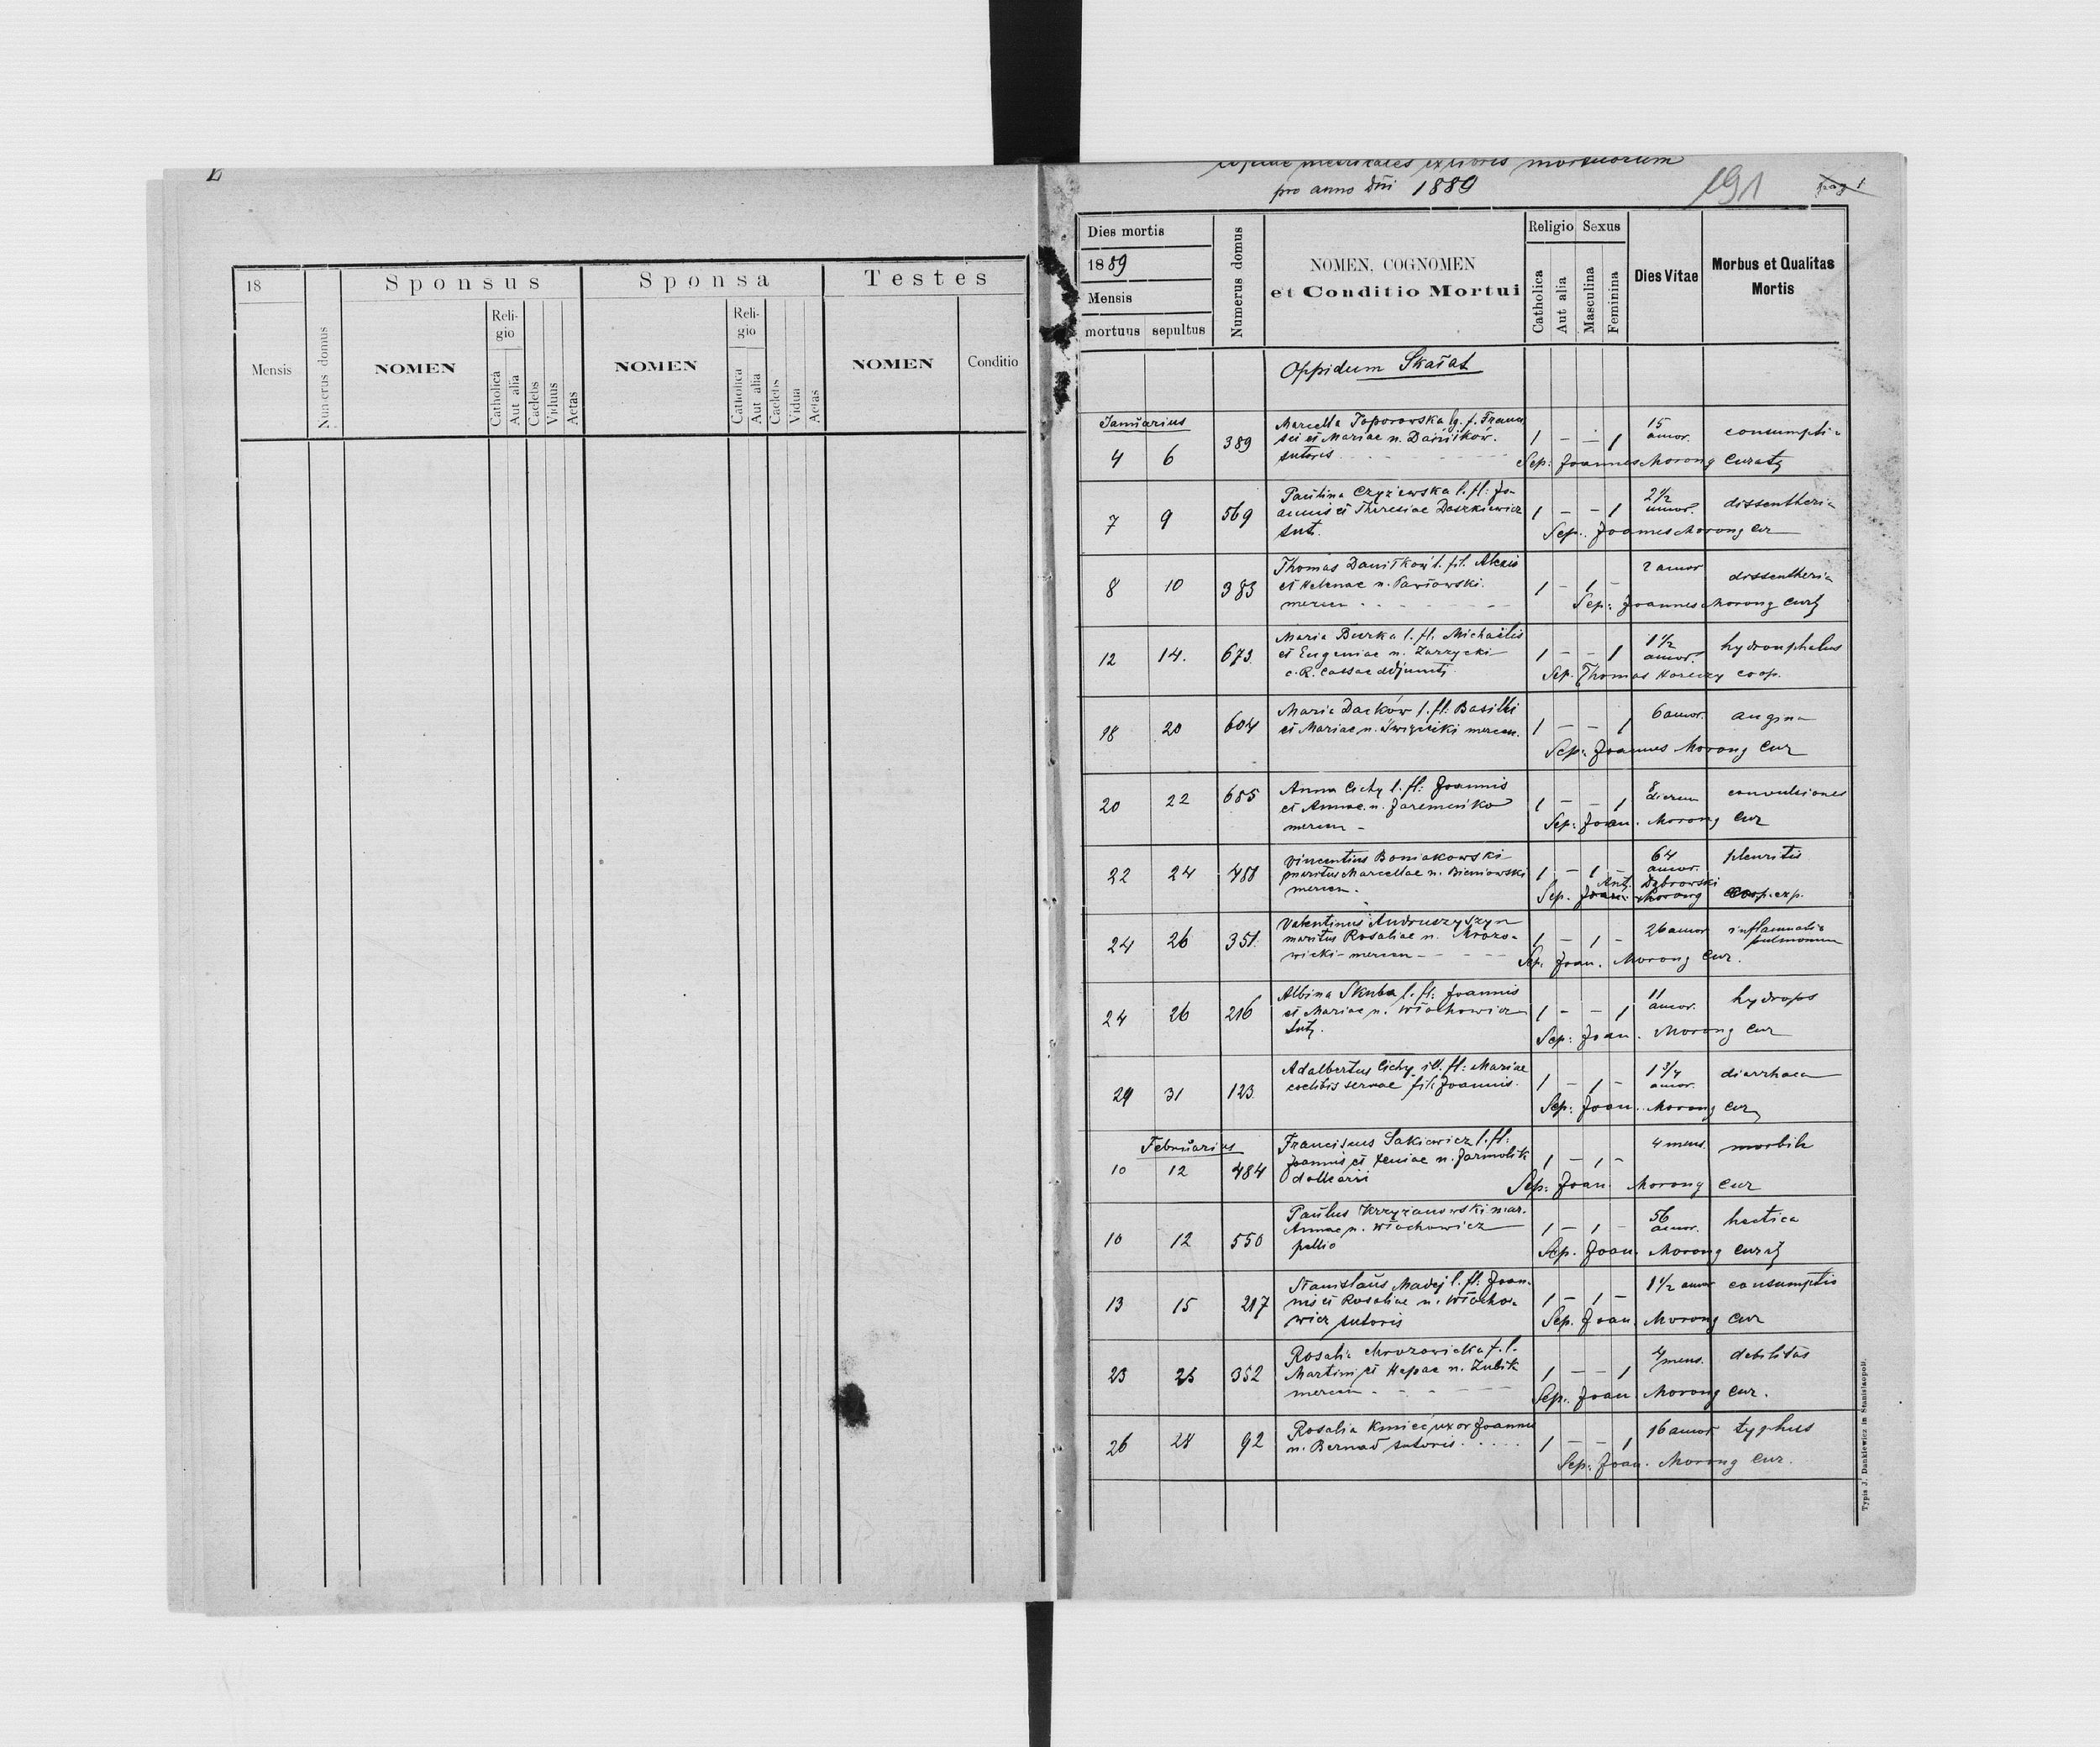 18
Mensis
Numerus domus
Sponsus
NOMEN
Reli-
gio
Catholica
Aut alia
Caelebs
Viduus
Aetas
Sponsa
NOMEN
Reli-
gio
Catholica
Aut alia
Caelebs
Vidua
Aetas
Testes
NOMEN
Conditio
ex libris mortuorum
pro anno Dni 1889
191
pag 1
Dies mortis
1889
Mensis
mortuus sepultus
Numerus domus
NOMEN, COGNOMEN
et Conditio Mortui
Religio
Catholica
Aut alia
Sexus
Masculina
Feminina
Dies Vitae
Morbus et Qualitas
Mortis
Oppidum Skałat
Januarius
4 6 389 Marcella Toporowska lg. f. Franci
sci et Mariae n. Daniłków.
sutoris
1 - - 1 15 annor. consumptio
Sep: Joannes Morong Curat
7 9 569 Paulina Czyżewska l. fl: Jo-
annis et Theresiae Daszkiewicz
sut.
1 - - 1 2 1/2 annor. dissentheria
Sep. Joannes Morong Cur
8 10 383 Thomas Daniłków l. fil. Alexis
et Helenae n. Pawłowski.
mercen
1 - 1 - 2 annor dissentheria
Sep: Joannes Morong Cur
12 14. 673 Maria Burka l. fl. Michaelis
et Eugeniae n. Zarzycki
c. R. cassae adjuncti
1 - - 1 1 1/2 annor. hydrocephalus
Sep. Thomas coop.
18 20 604 Maria Daćków l. fl: Basilii
et Mariae n. Święcicki mercen.
1 - - 1 6 annor. angina
Sep: Joannes Morong Cur
20 22 685 Anna Cichy l. fl: Joannis
et Annae n. Jaremeńko
mercen
1 - - 1 8 dierum convulsiones
Sep: Joan. Morong Cur
22 24 488 Vincentius Boniakowski
maritus Marcellae n. Bieniowski
mercen.
1 - 1 - 64 annor. pleuritis
Ant. Dąbrowski
Sep. Joan. Morong Coop. exp.
24 26 351. Valentinus Andruszyszyn
maritus Rosaliae n. Mrozo-
wicki mercen
1 - 1 - 26 annor inflammatio
pulmonum
Sep. Joan. Morong Cur.
24 26 216 Albina Skuba l. fl: Joannis
et Mariae n. Włochowicz
sut.
1 - - 1 11 annor. hydrops
Sep: Joan. Morong Cur
29 31 123. Adalbertus Cichy ill. fl: Mariae
coelibis servae fil. Joannis.
1 - 1 - 1 3/4 annor. diarrhaea
Sep: Joan. Morong Cur
Februarius
10 12 484 Franciscus Sakiewicz l. fl:
Joannis et Xeniae n. Jarmolik
doliarii
1 - 1 - 4 mens. morbili
Sep: Joan. Morong Cur
10 12 550 Paulus Krzyżanowski mar.
Annae n. Włochowicz
pellio
1 - 1 - 56 annor. hectica
Sep. Joan. Morong Curat
13 15 217 Stanislaus Madej l. fl: Joan-
nis et Rosaliae n. Włocho-
wicz sutoris
1 - 1 - 1 1/2 annor consumptio
Sep. Joan. Morong Cur
23 25 352 Rosalia Mrozowicka f. l.
Martini et Hapae n. Zubik
mercen
1 - - 1 4 mens. debilitas
Sep. Joan. Morong Cur.
26 28 92 Rosalia Kmieć uxor Joannis
n. Bernad sutoris
1 - - 1 46 annor typhus
Sep: Joan. Morong Cur.
Typis J. Dankiewicz in Stanislaopoli.